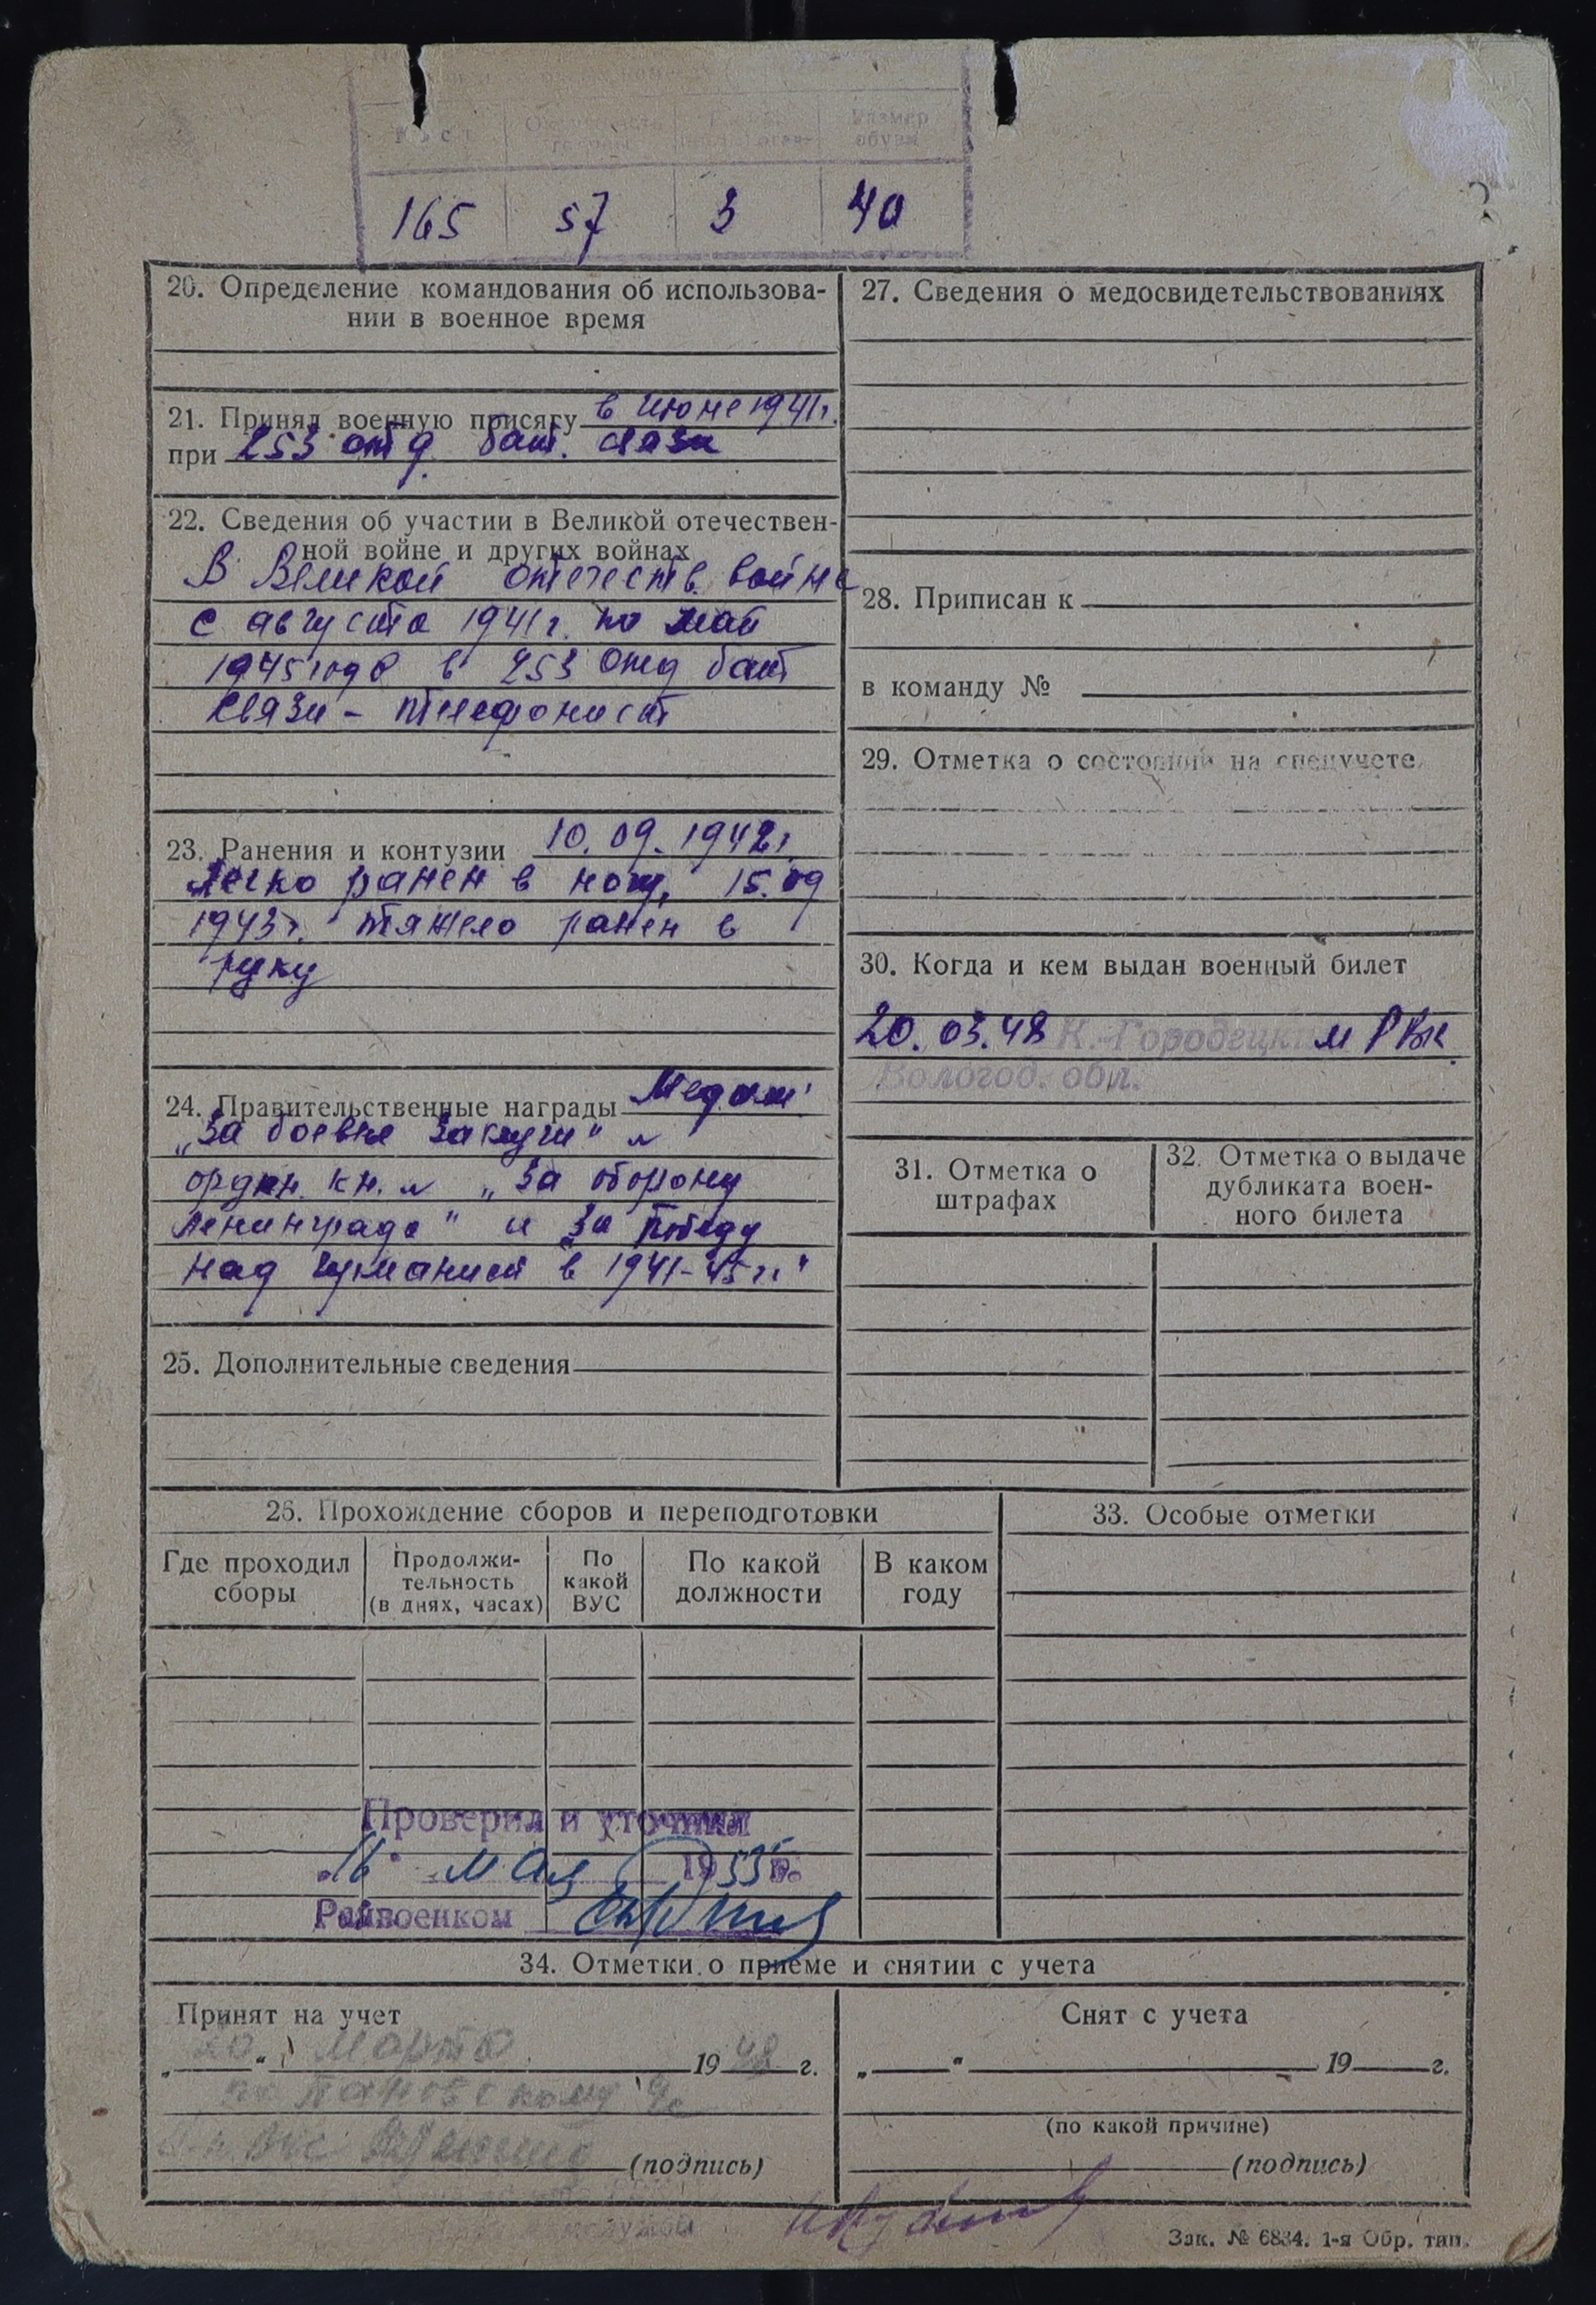 Размер
обуви
165 57 3 40
20. Определение командования об использова-
нии в военное время
21. Принял военную присягу в июне 1941 г.
при 253 отд. бат. связи
22. Сведения об участии в Великой отечествен-
ной войне и других войнах
В Великой отечеств. войне
с августа 1941 г. по май
1945 года в 253 отд бат
связи - телефонист
23. Ранения и контузии 10.09.1942 г.
легко ранен в ногу, 15.09
1943 г. тяжело ранен в
руку
24. Правительственные награды Медали
"За боевые заслуги" и
орден. кн. и "За оборону
Ленинграда" и "За победу
над Германией в 1941-45 гг."
25. Дополнительные сведения
27. Сведения о медосвидетельствованиях
28. Приписан к
в команду №
29. Отметка о состоянии на спецучете
30. Когда и кем выдан военный билет
20.03.48 К.-Городецким РВК
Вологод. обл.
31. Отметка о
штрафах
32. Отметка о выдаче
дубликата воен-
ного билета
26. Прохождение сборов и переподготовки
Где проходил
сборы
Продолжи-
тельность
(в днях, часах)
По
какой
ВУС
По какой
должности
В каком
году
33. Особые отметки
Проверил и уточнил
"16" мая 1953 г.
Райвоенком
34. Отметки о приеме и снятии с учета
Принят на учет
"20" Марта 1948 г.
по
(подпись)
Снят с учета
" " 19 г.
(по какой причине)
(подпись)
Зак. № 6834. 1-я Обр. тип.